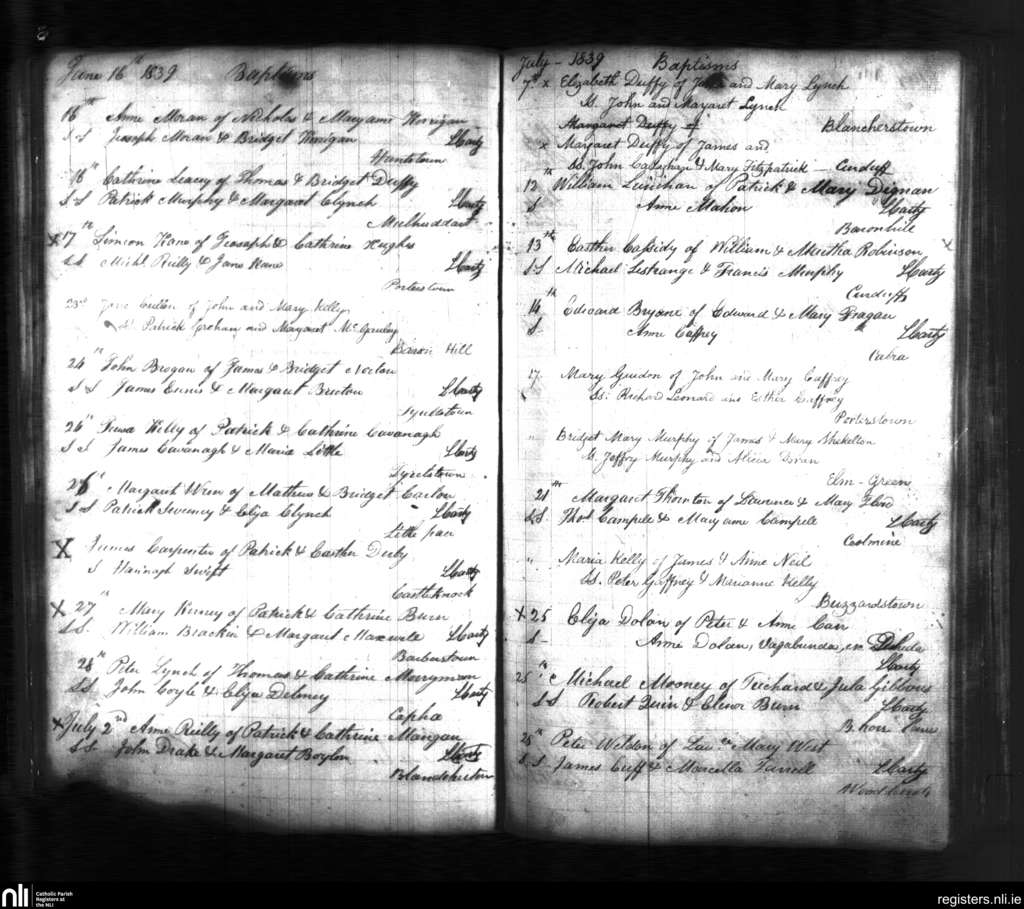 June 16th 1839 Baptisms
16th Anne Moran of Nicholas & Maryanne Horrigan
S-S Joseph Moran & Bridget Horrigan LCarty
Huntstown
16th Cathrine Leacy of Thomas & Bridget Duffy
S-S Patrick Murphy & Margaret Clynch LCarty
Mulhuddart
x 17th Simion Kane of Joasaph & Cathrine Hughes
S.S Michl Reilly & Jane Kane LCarty
Porterstown
23rd Jane Cullen of John and Mary Kelly
Patrick Graham and Margaret McGauley
Hill
24th John Brogan of James & Bridget
S S James Ennis & Margaret LCarty
26th Kelly of Patrick & Cathrine Cavanagh
S S James Cavanagh & Maria Little LCarty
Tyrelstown
26th Margaret Wren of Mathew & Bridget Carton
S-S Patrick Sweeney & Eliza Clynch LCarty
Little pace
X James Carpenter of Patrick & Easther Derby
S Hannagh Swift LCarty
Castleknock
x 27th Mary of Patrick & Cathrine Burn
S.S. William Bracken & Margaret Maxwell LCarty
Barberstown
28th Peter Lynch of Thomas & Cathrine Merryman
S.S. John Coyle & Eliza Delaney LCarty
Capha
x July 2nd Anne Reilly of Patrick & Cathrine Mangan
S.S. John Drake & Margaret Boylan LCarty
July - 1839 Baptisms
7th x Elizabeth Duffy of and Mary Lynch
SS. John and Margaret Lynch
Margaret Duffy of Blancherstown
x Margaret Duffy of James and
SS. John & Mary Fitzpatrick - Curduff
12th William Linihan of Patrick & Mary Dignan
S Anne Mahon LCarty
13th Easther Cassidy of William & Robinson
S-S Michael Lestrange & Francis Murphy LCarty
Curduff
14th Edward of Edward & Mary Fragan
S Anne Caffrey LCarty
Cabra
17 Mary of John and Mary Caffrey
SS: Richard Leonard and Esther Caffrey
Porterstown
" Bridget Mary Murphy of James & Mary Shekelton
SS. Jeffry Murphy and Alicia Doran
Elm-Green
21st Margaret Thornton of Lawrence & Mary
S.S. Thos Campell & Maryanne Campell LCarty
Coolmine
" Maria Kelly of James & Anne Neil
SS. Peter Gaffney & Marianne Kelly
Buzzardstown
x 25 Eliza Dolan of Peter & Anne Carr
S- Anne Dolan, Vagabunda, en
LCarty
25th Michael Mooney of & Jula Gibbons
S S Robert Quin & Elenor Burn LCarty
28th Peter Weldon of Mary West
S.S James Cuff & Marcella Farrell LCarty
nli Catholic Parish
Registers at
the NLI
registers.nli.ie